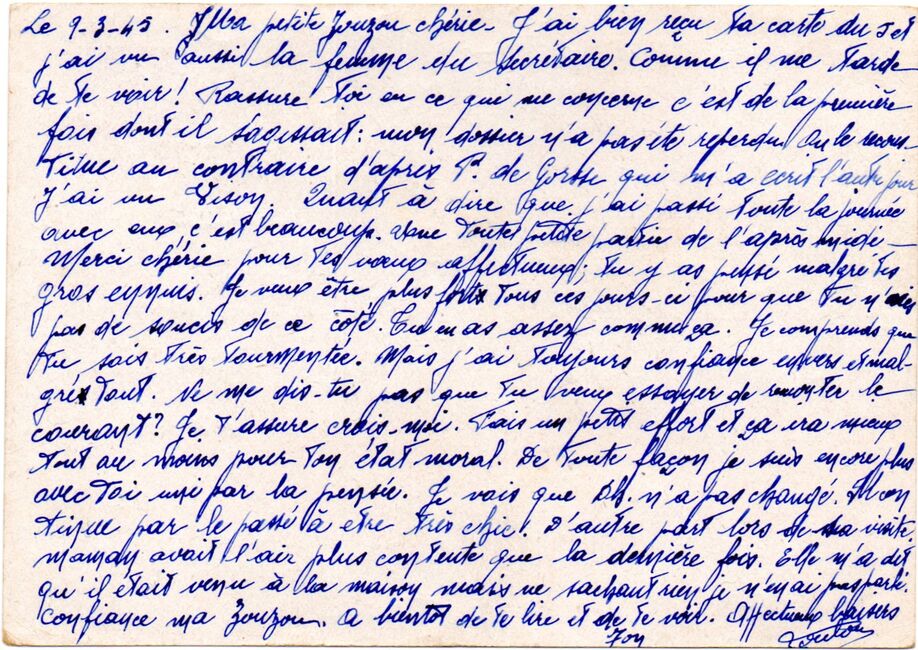 Le 9-3-45. Ma petite Zouzou chérie. J'ai bien reçu ta carte du 5 et
j'ai vu aussi la femme du secrétaire. Comme il me tarde
de te voir! Rassure toi en ce qui me concerne c'est de la première
fois dont il s'agissait: mon dossier n'a pas été reperdu. On le recons-
titue au contraire d'après P. de Gorsse qui m'a écrit l'autre jour
J'ai vu Vison. Quant à dire que j'ai passé toute la journée
avec eux c'est beaucoup. Une toute petite partie de l'après midi-
Merci chérie pour tes vœux affectueux; tu y as pensé malgré tes
gros ennuis. Je veux être plus fort tous ces jours-ci pour que tu n'aies
pas de soucis de ce côté. Tu en as assez comme ça. Je comprends que
tu sois très tourmentée. Mais j'ai toujours confiance envers et mal-
gré tout. Ne me dis-tu pas que tu veux essayer de remonter le
courant? Je t'assure crois-moi. Fais un petit effort et ça ira mieux
tout au moins pour ton état moral. De toute façon je suis encore plus
avec toi uni par la pensée. Je vois que Ch. n'a pas changé. Il con
tinue par le passé à etre très chic. D'autre part lors de sa visite,
maman avait l'air plus contente que la dernière fois. Elle m'a dit
qu'il était venu à la maison mais ne sachant rien je n'en ai pas parlé.
Confiance ma Zouzou. A bientôt de te lire et de te voir. Affectueux baisers
Ton